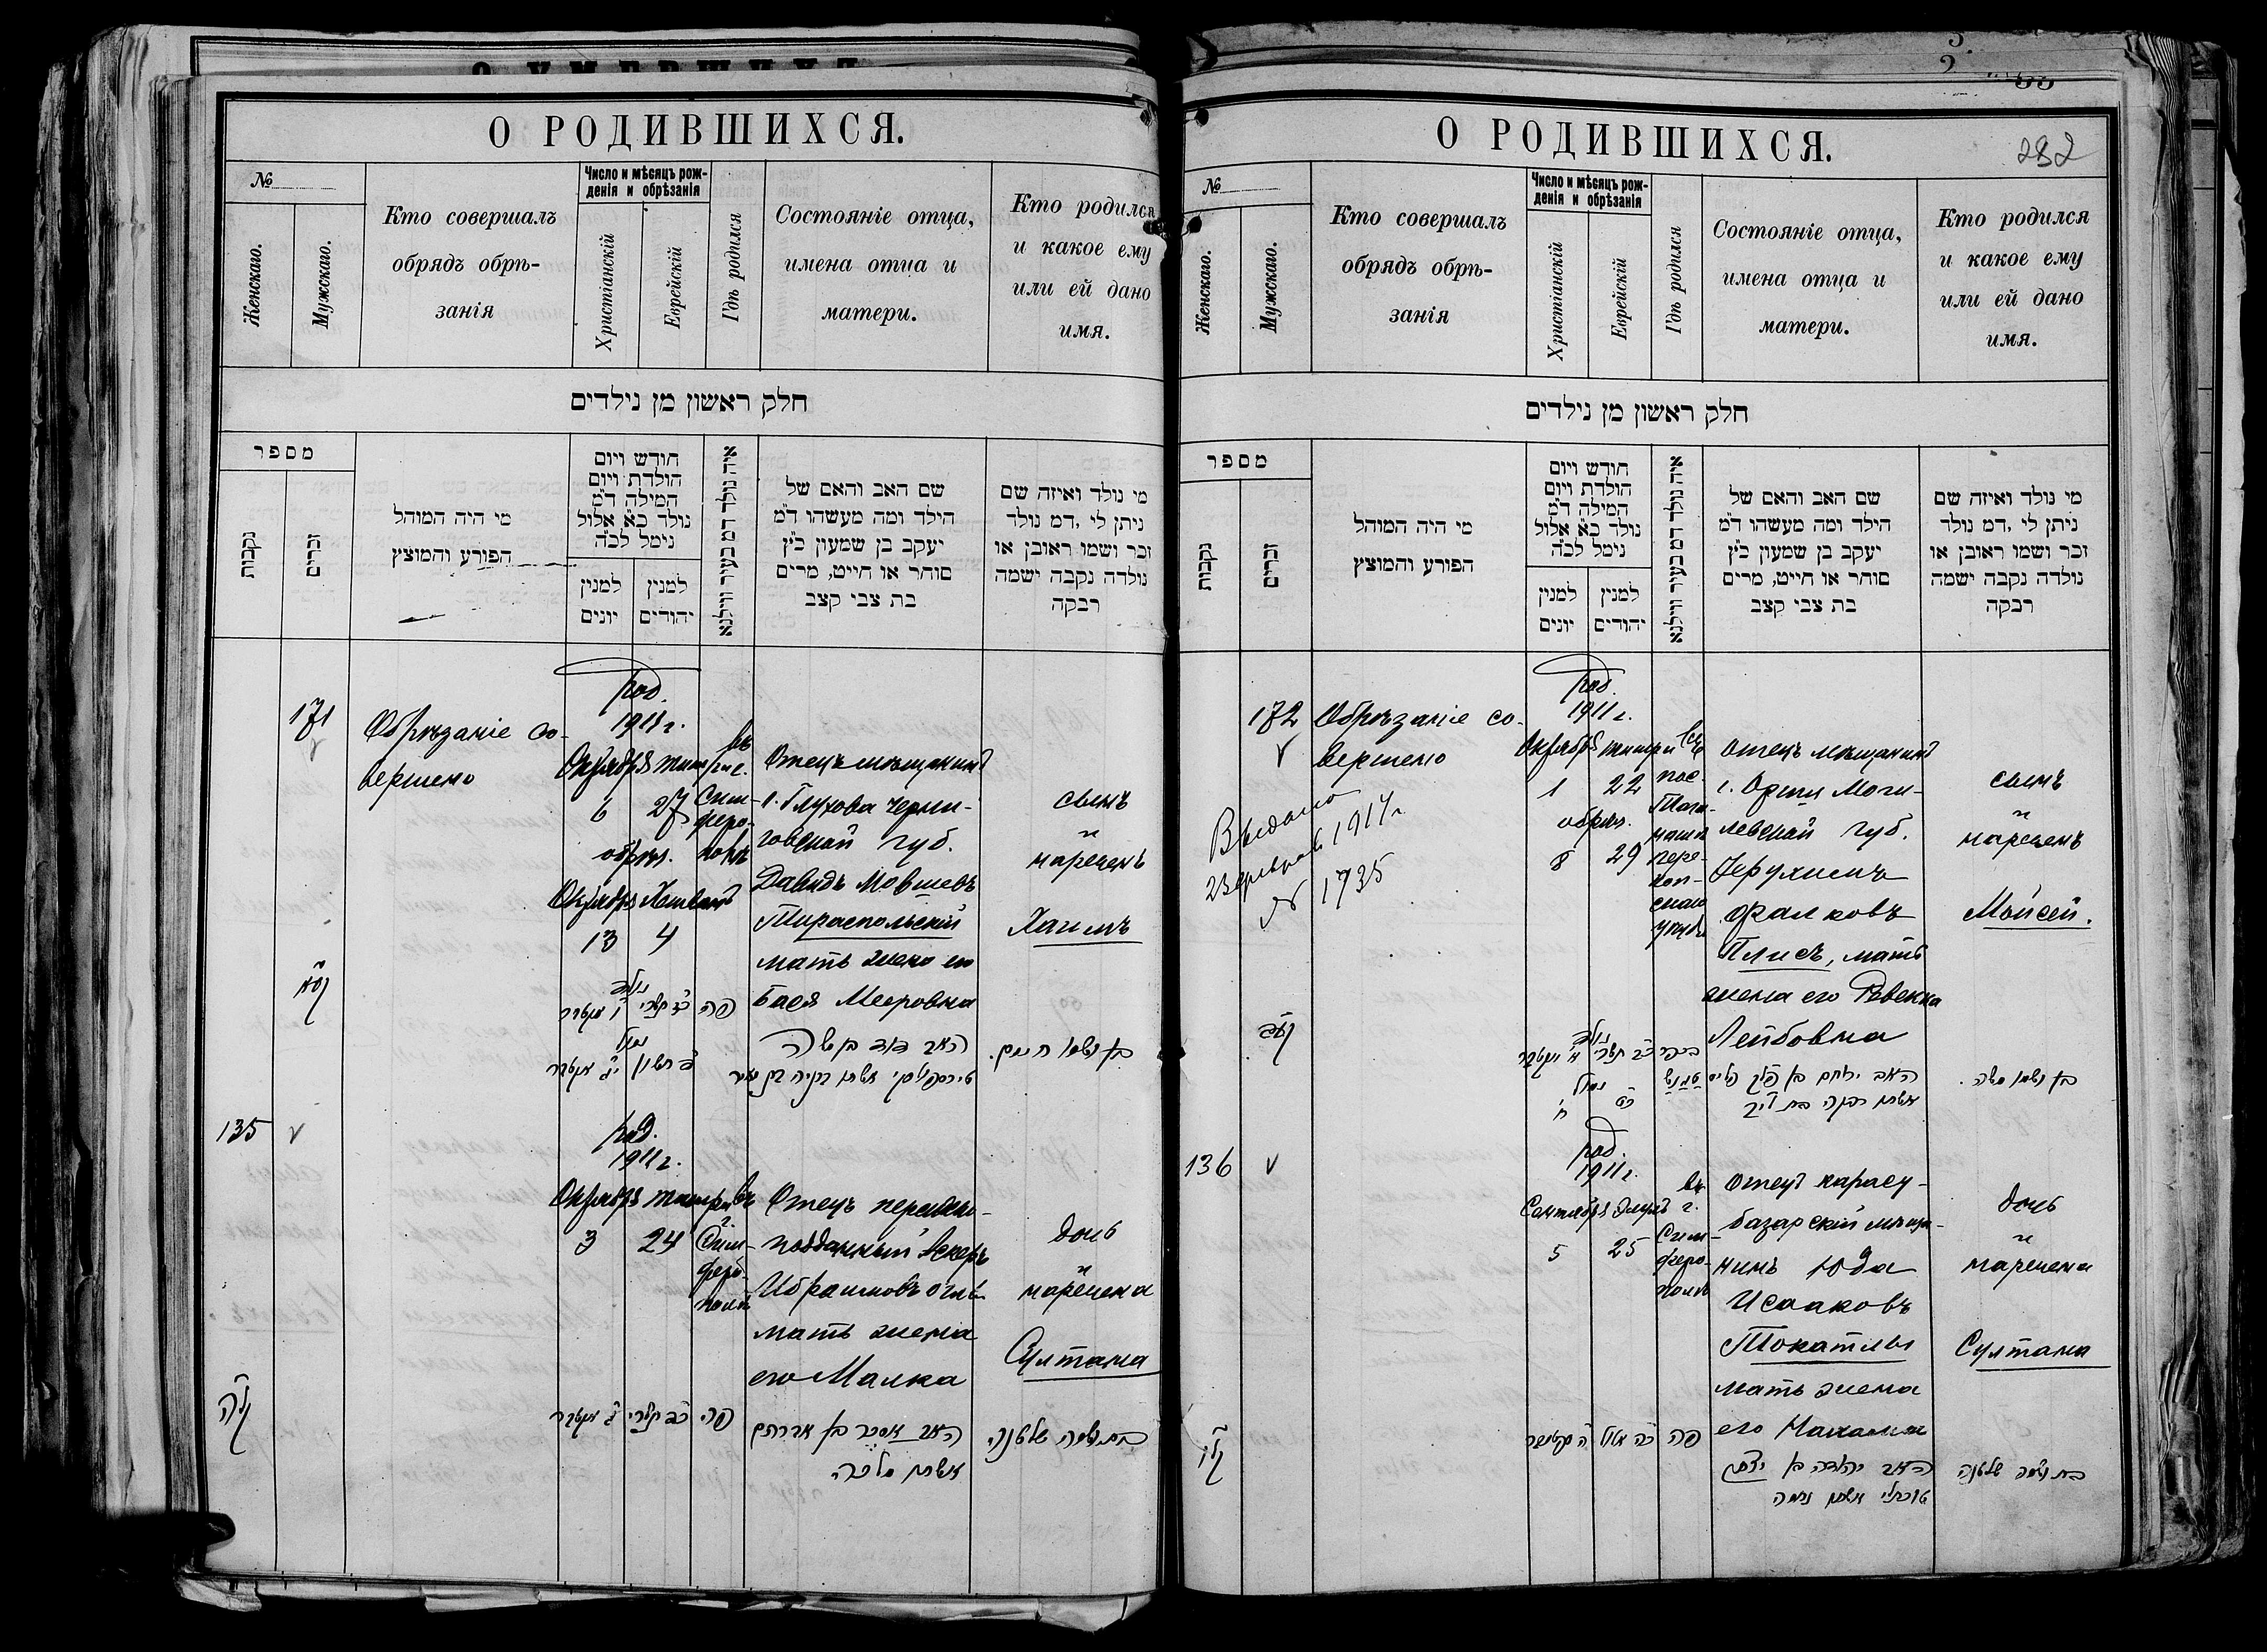 О РОДИВШИХСЯ.
№
Женскаго.
Мужскаго.
Кто совершалъ
обрядъ обрѣ-
занія
Число и мѣсяцъ рож-
денія и обрѣзанія
Христіанскій
Еврейскій
Гдѣ родился
Состояніе отца,
имена отца и
матери.
Кто родился
и какое ему
или ей дано
имя.
חלק ראשון מן נילדים
מספר
נקבות
זכרים
מי היה המוהל
הפורע והמוצץ
חודש ויום
הולדת ויום
המילה ד"מ
נולד כ"א אלול
נימל לכ"ה
למנין
יונים
למנין
יהודים
איה נולד דמ בעיר ווילנא
שם האב והאם של
הילד ומה מעשהו ד"מ
יעקב בן שמעון כ"ץ
סוחר או חייט, מרים
בת צבי קצב
מי נולד ואיזה שם
ניתן לי ,דמ נולד
זכר ושמו ראובן או
נולדה נקבה ישמה
רבקה
171
Обрѣзаніе со-
вершено
род.
1911 г.
Октября тишри
6 27
обрѣз.
Октября Хешванъ
13 4
въ
г.
Сим-
феро-
полѣ
Отецъ мѣщанинъ
г. Глухова Черни-
говской губ.
Давидъ Мовшевъ
Тираспольскій
мать жена его
Бася Мееровна
сынъ
и
нареченъ
Хаимъ
קעא
נולד
פה
האב דוד בן משה
בן ושמו חיים.
135
род.
1911 г.
Октября тишри
3 24
въ
г.
Сим-
феро-
полѣ
Отецъ персидско-
подданный Аскеръ
Ибраимовъ оглы
мать жена
его Малка
дочь
и
наречена
Султана
קלה
פה
האב אסכר בן אברהם
אשתו מלכה
בת ושמה שלטנה
О РОДИВШИХСЯ.
282
№
Женскаго.
Мужскаго.
Кто совершалъ
обрядъ обрѣ-
занія
Число и мѣсяцъ рож-
денія и обрѣзанія
Христіанскій
Еврейскій
Гдѣ родился
Состояніе отца,
имена отца и
матери.
Кто родился
и какое ему
или ей дано
имя.
חלק ראשון מן נילדים
מספר
נקבות
זכרים
מי היה המוהל
הפורע והמוצץ
חודש ויום
הולדת ויום
המילה ד"מ
נולד כ"א אלול
נימל לכ"ה
למנין
יונים
למנין
יהודים
איה נולד דמ בעיר ווילנא
שם האב והאם של
הילד ומה מעשהו ד"מ
יעקב בן שמעון כ"ץ
סוחר או חייט, מרים
בת צבי קצב
מי נולד ואיזה שם
ניתן לי ,דמ נולד
זכר ושמו ראובן או
נולדה נקבה ישמה
רבקה
172
Обрѣзаніе со-
вершено
Выдано
23 февраля 1914 г.
№ 1735
род.
1911 г.
Октября тишри
1 22
обрѣз.
8 29
въ
пос.
пере-
коп-
скаго
уѣзда
Отецъ мѣщанинъ
г. Орши Моги-
левской губ.
Іерухимъ
Фалковъ
Плисъ, мать
жена его Ревекка
Лейбовна
сынъ
и
нареченъ
Мойсей.
קעב
נולד
האב ירוחם בן פלק פליס
אשתו רבקה בת לייב
בן ושמו משה
136
род.
1911 г.
Сентября Элулъ
5 25
въ
г.
Сим-
феро-
полѣ
Отецъ карасу-
базарскій мѣща-
нинъ Юда
Исааковъ
Токатлы
мать жена
его
дочь
и
наречена
Султана
קלו
פה
האב יהודה בן יצחק
טוקטלי אשתו נחמה
בת ושמה שלטנה